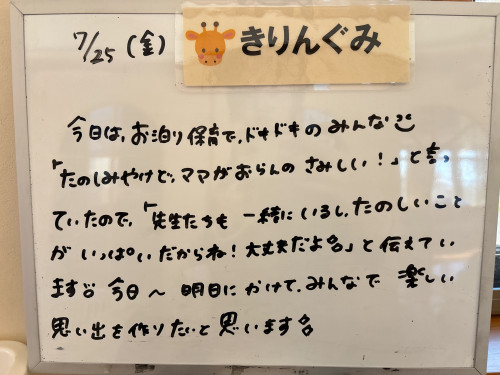 7/25 (金)
きりんぐみ
今日は、お泊り保育で、ドキドキのみんな
「たのしみやけど、ママがおらんのさみしい！」と言っ
ていたので、「先生たちも一緒にいるし、たのしいこと
がいっぱいだからね！大丈夫だよ」と伝えてい
ます 今日〜明日にかけて、みんなで楽しい
思い出を作りたいと思います